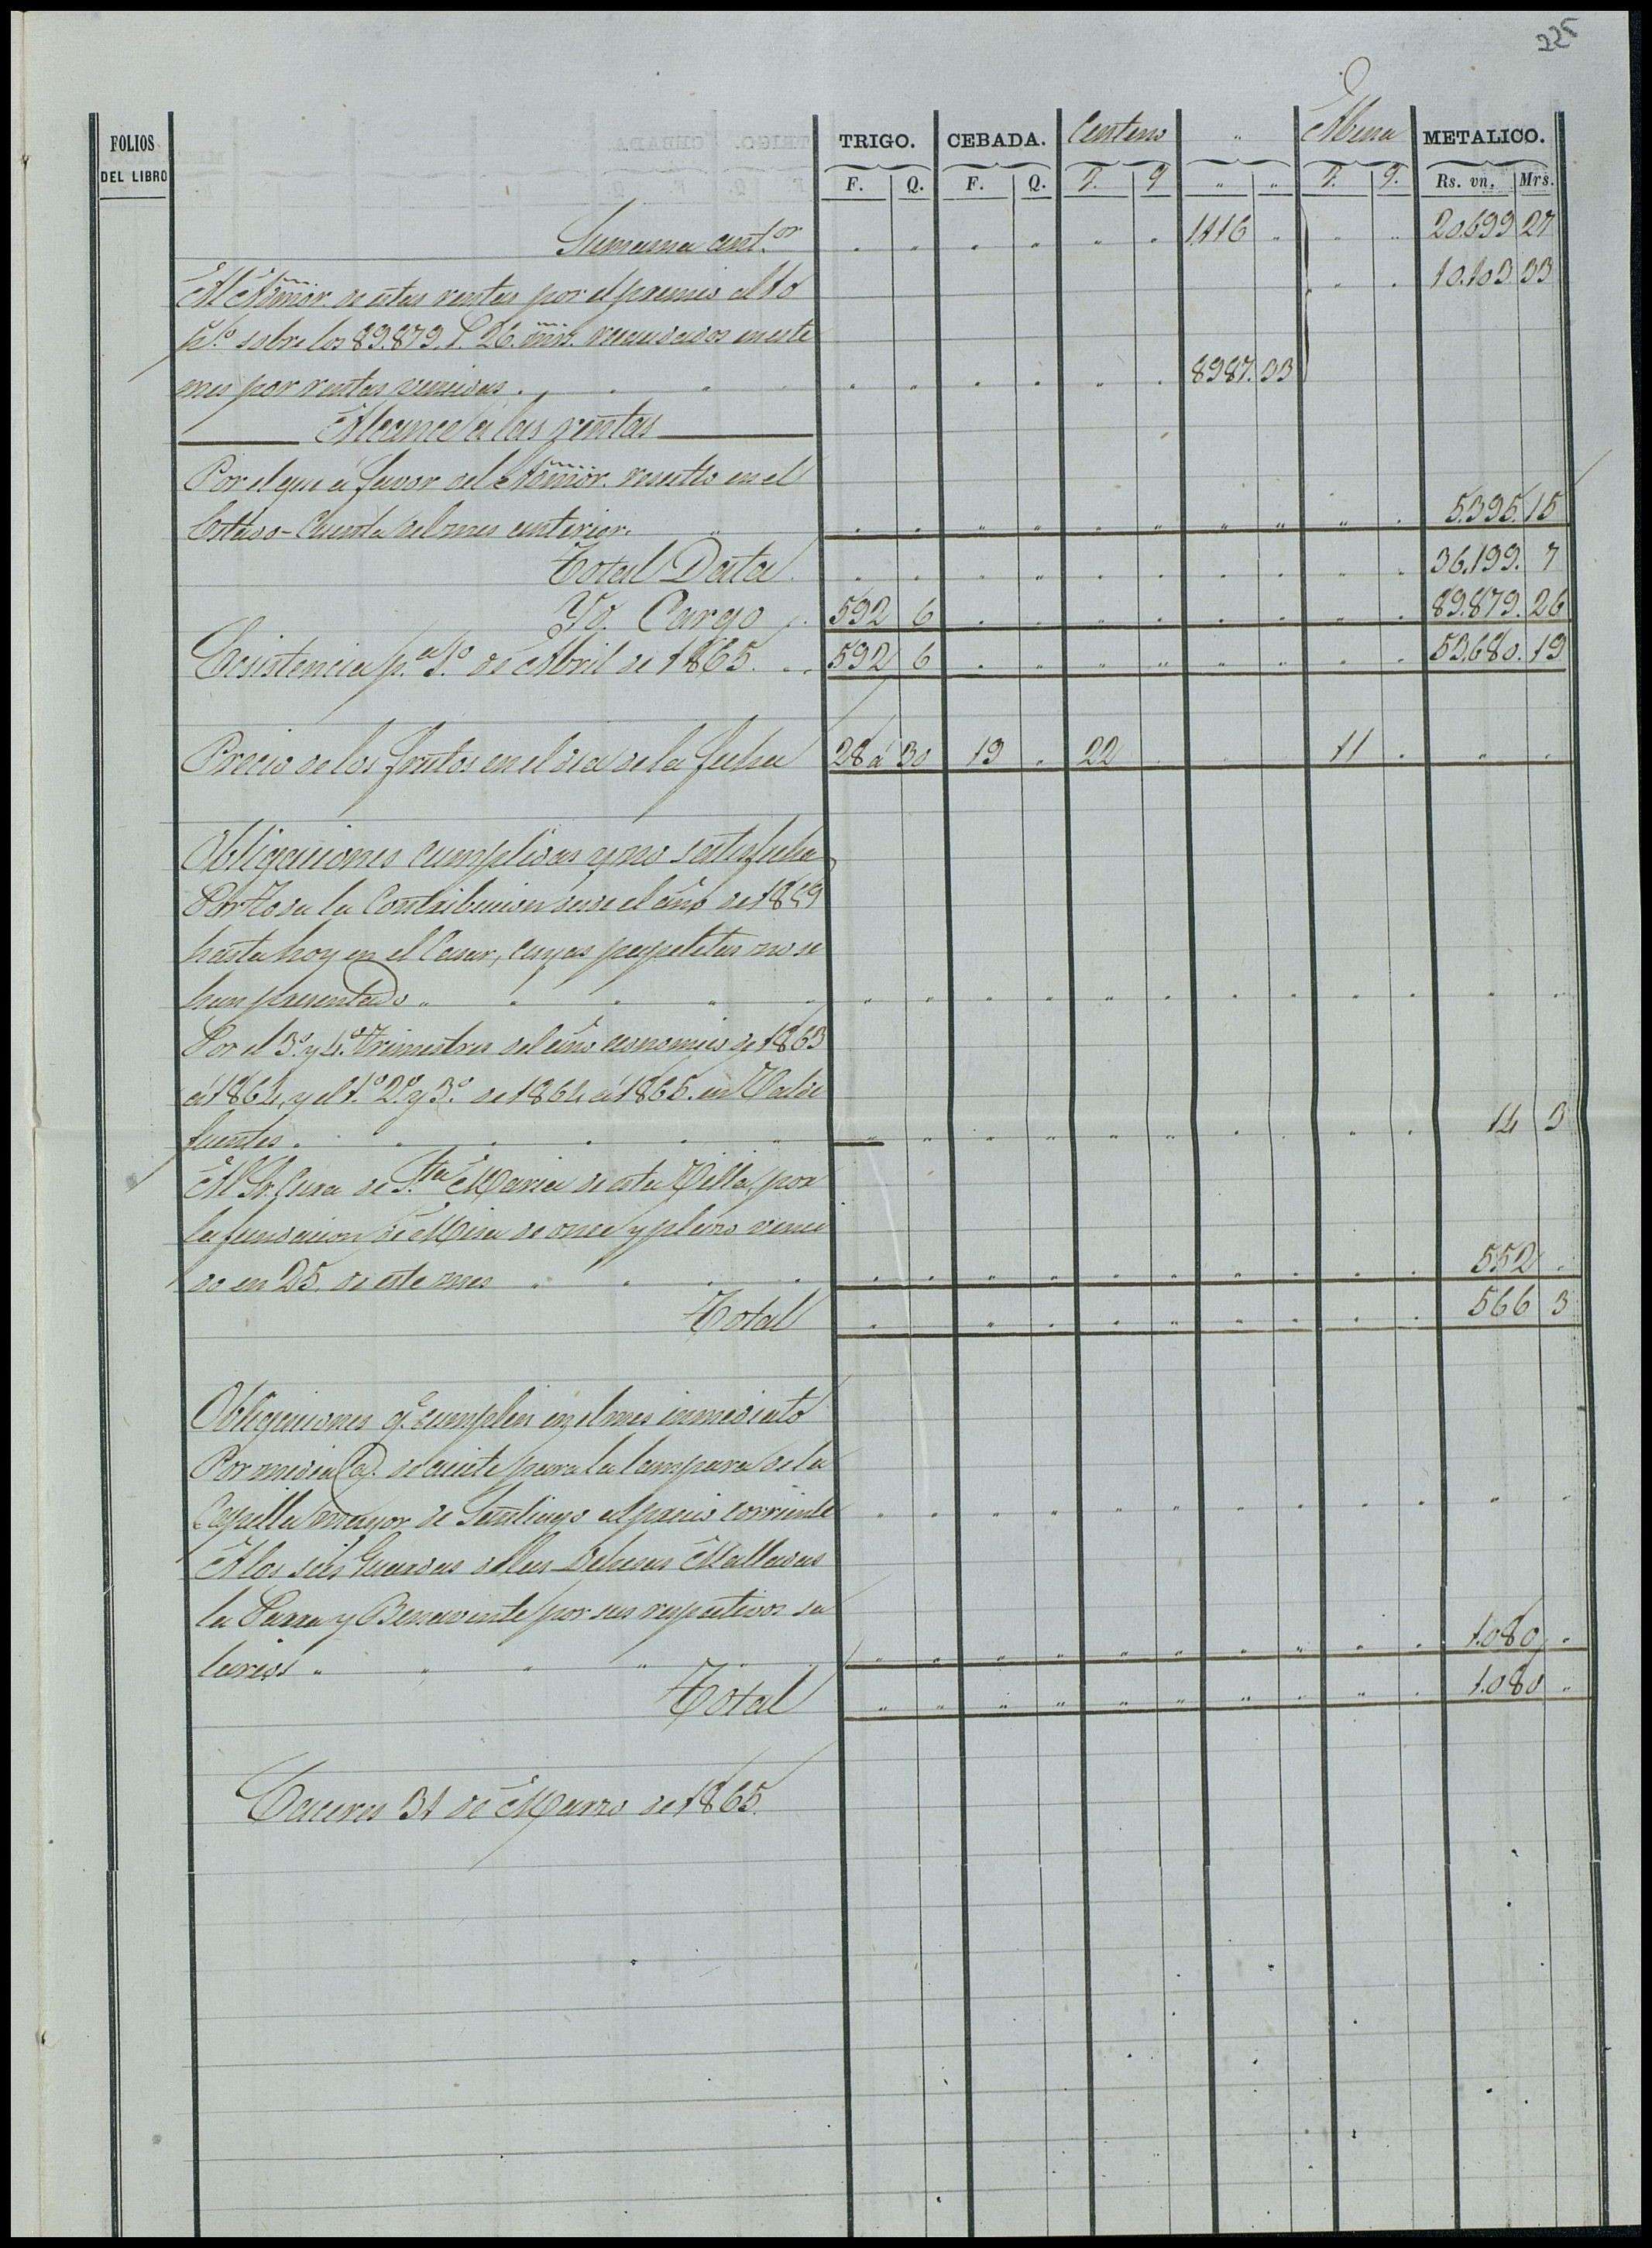 225
FOLIOS DEL LIBRO TRIGO. CEBADA. Centeno " Abena METALICO.
F. Q. F. Q. F. Q " " F. Q. Rs. vn. Mrs.
Suma ant.or 1.116 20.699 27
Al Admor. de estas rentas por el premio al 10 10.103 33
p.o sobre los 89.879. r. 26. mrs. recaudados en este
mes por rentas vencidas 8987. 33
Alcance a las rentas
Por el que á favor del Admor. resultó en el
Estado-Cuenta del mes anterior. 5.395. 15
Total Data 36.199. 7
Yd. Cargo 592 6 89.879. 26
Ecsistencia p.a 1.o de Abril de 1865. 592 6 53.680. 19
Precio de los frutos en el dia de la fecha 28 á 30 19 22 11
Obligaciones cumplidas y no satisfechas
Por toda la Contribucion desde el año de 1859
hasta hoy en el Casar, cuyas papeletas no se
han presentado
Por el 3.o y 4.o trimestres del año economico de 1863
á 1864, y el 1.o 2.o y 3.o de 1864 á 1865. en Valde
fuentes 14 3
Al Sr. Cura de S.ta Maria de esta Villa, por
la fundacion de Misa de once y plazo venci
do en 25. de este mes 552
Total 566 3
Obligaciones q.e cumplen en el mes inmediato
Por media @. de aceite para la lampara de la
Capilla mayor de Santiago al precio corriente
A los seis Guardas de las Dehesas Malladas
la Parra y Benavente por sus respectivos sa
larios 1.080
Total 1.080
Caceres 31 de Marzo de 1865.